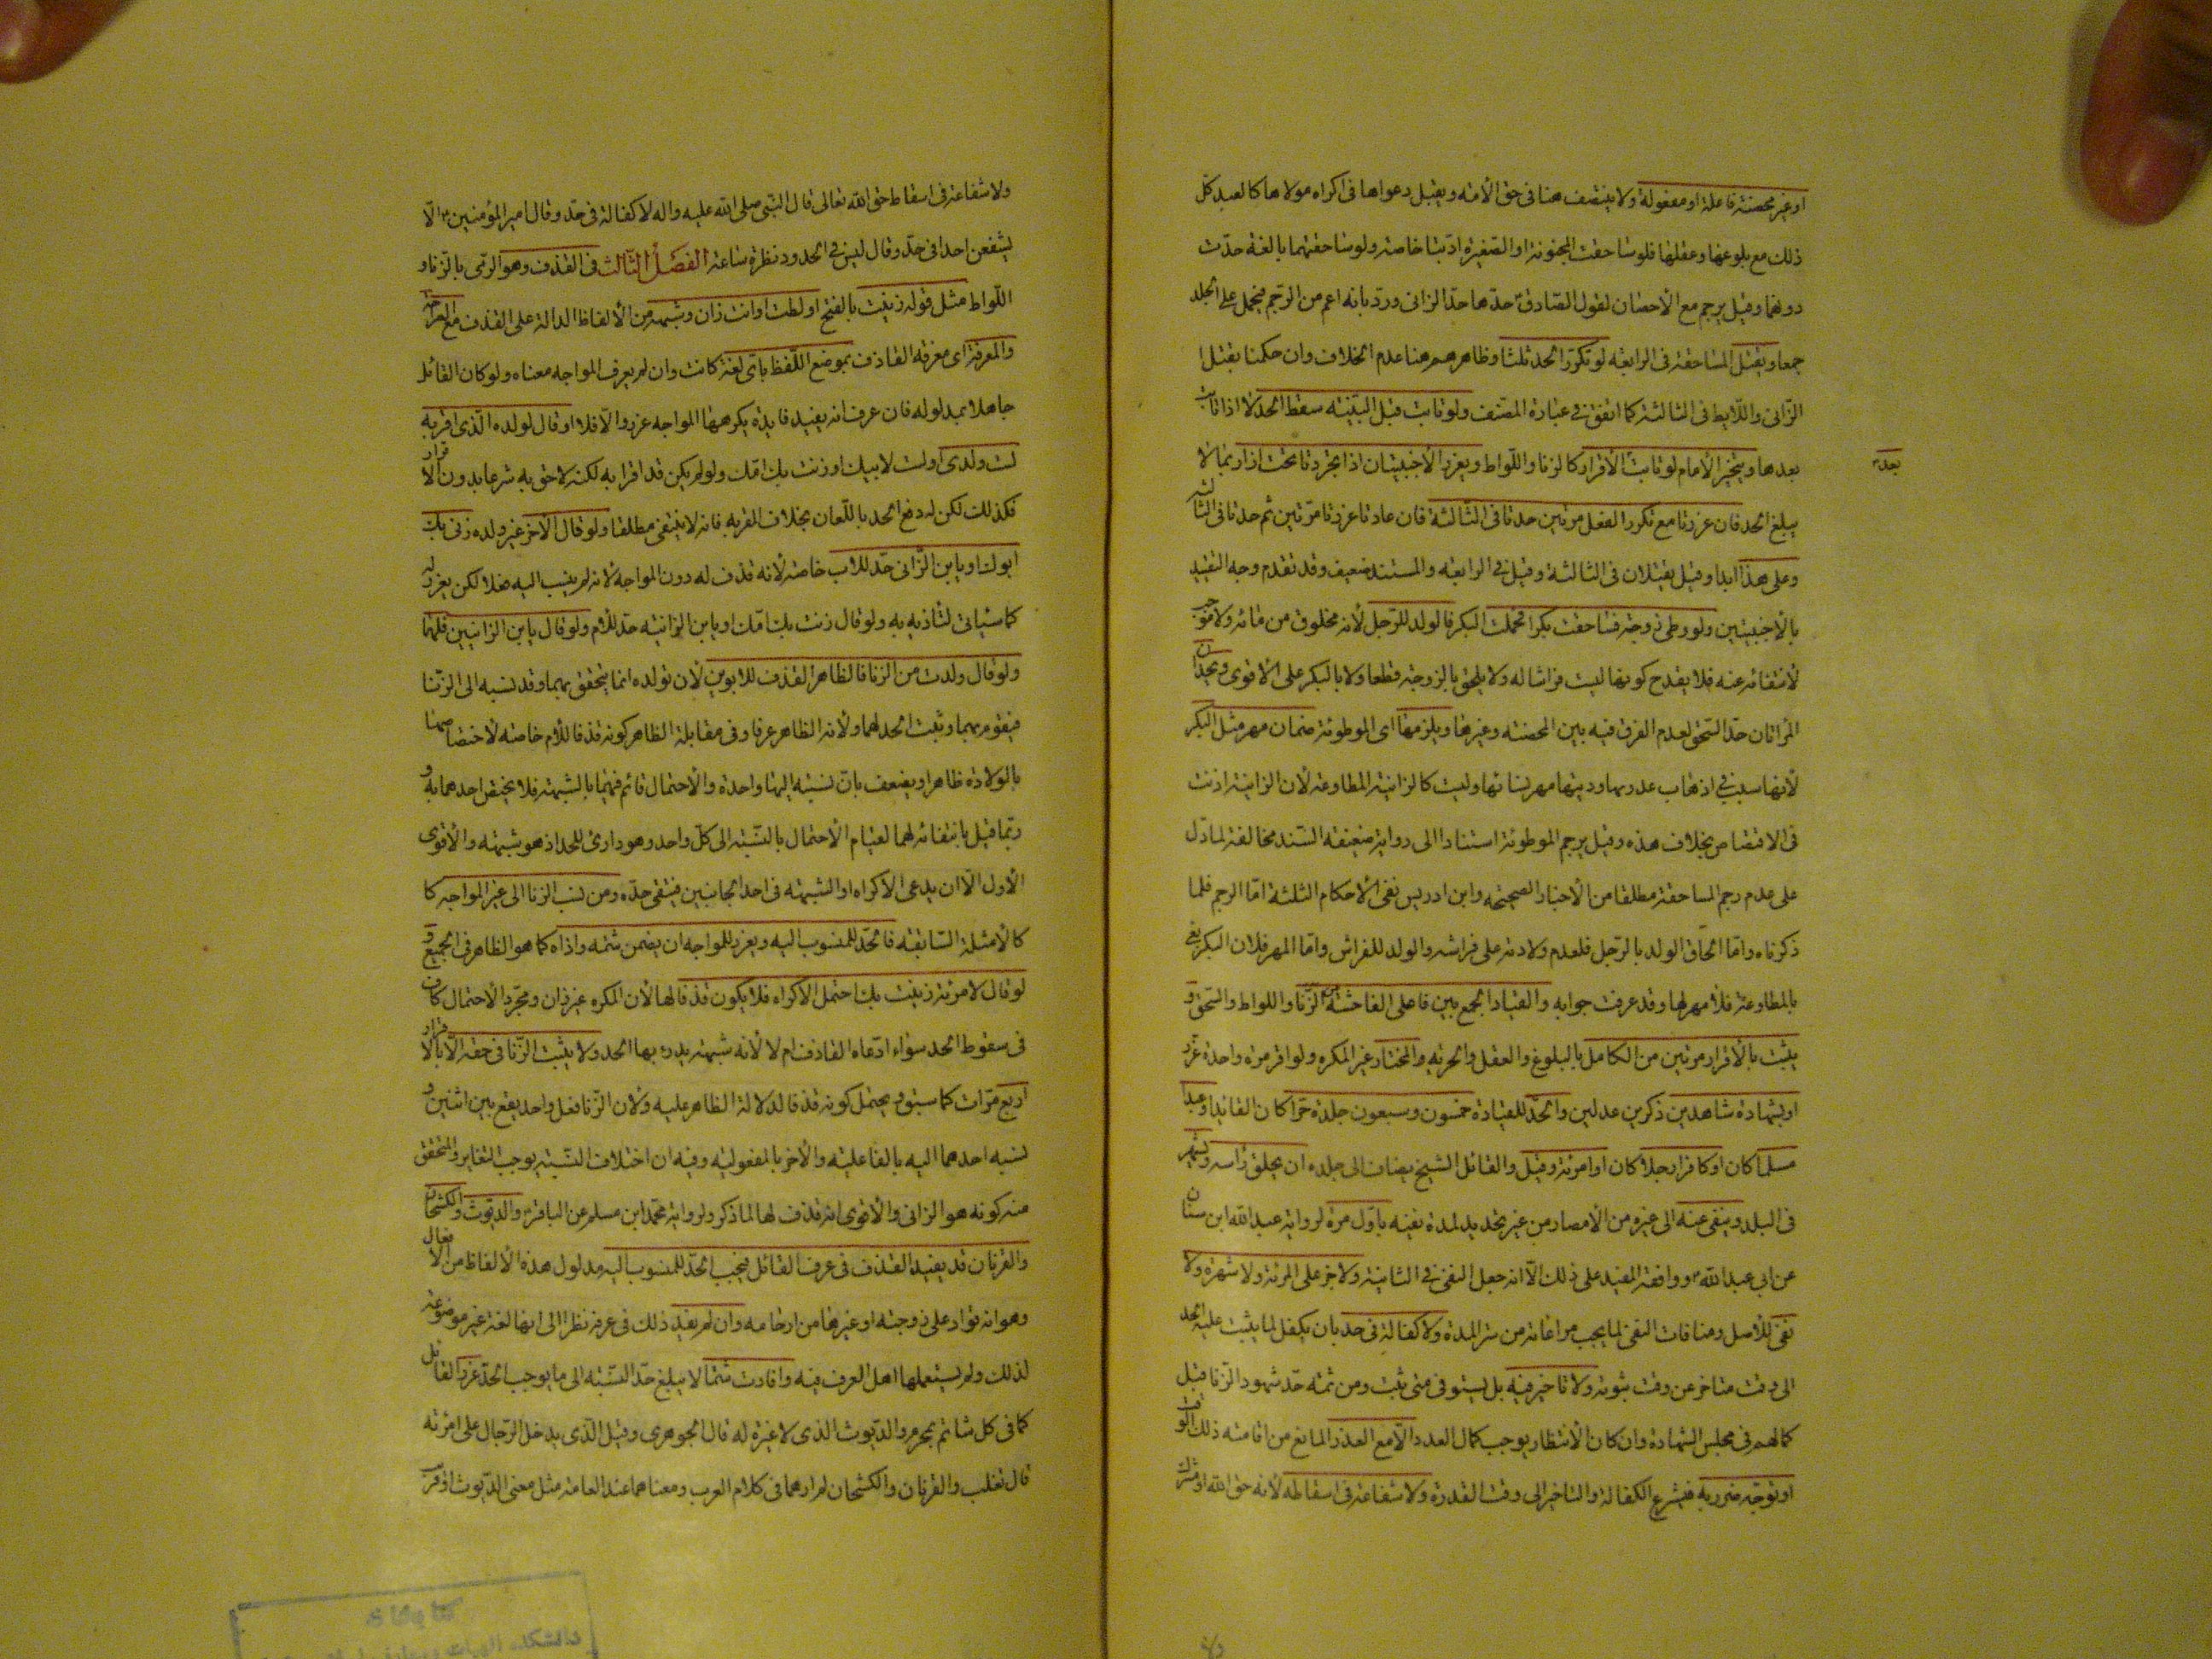 او غير محصنة فاعلة او مفعولة ولا ينتصف هنا فى حق الأمة ويقبل دعواها فى اكراه مولاها كالعبد كل
ذلك مع بلوغها وعقلها فلو ساحقت المجنونة او الصغيرة ادبتا خاصة ولو ساحقتهما بالغة حدّت
دونهما وقيل يرجم مع الأحصان لقول الصادق ع حدها حدّ الزانى وردّ بانه اعم من الرجم فيحمل على الجلد
جمعا ويقتل المساحقة فى الرابعة لو تكرّر الحد ثلثا وظاهرهم هنا عدم الخلاف وان حكمنا بقتل ا
الزّانى واللايط فى الثالثة كما اتفق فى عبارة المصنف ولو تابت قبل البيّنة سقط الحد لا اذا تابت
بعدها ويتخير الأمام لو تابت الأقرار كالزنا واللواط ويعزر الأجنبيتان اذا تجردتا تحت ازار بما لا
بعد
يبلغ الحد فان عزرتا مع تكرر الفعل مرتين حدتا فى الثالثة فان عادتا عزرتا مرّتين ثم حدتا فى الثالثة
وعلى هذا ابدا وقيل يقتلان فى الثالثة وقيل فى الرابعة والمستند ضعيف وقد تقدم وجه التقييد
بالأجنبيتين ولو وطئ زوجته فساحقت بكرا فحملت البكر فالولد للرّجل لأنه مخلوق من مائه ولا موجب
لأنتفائه عنه فلا يقدح كونها ليست فراشا له ولا يلحق بالزوجة قطعا ولا بالبكر على الأقوى ويحدّان
المراتان حدّ السّحق لعدم الفرق فيه بين المحصنة وغيرها ويلزمها اى الموطوئة ضمان مهر مثل البكر
لأنها سبب فى اذهاب عذرتها وديتها مهر نسائها وليست كالزانية المطاوعة لأن الزانية اذنت
فى الافتضاض بخلاف هذه وقيل يرجم الموطوئة استنادا الى رواية ضعيفة السّند مخالفة لما دّل
على عدم رجم المساحقة مطلقا من الأخبار الصحيحة وابن ادريس نفى الأحكام الثلثة امّا الرجم فلما
ذكرناه وامّا الحاق الولد بالرّجل فلعدم ولادته على فراشه والولد للفراش وامّا المهر فلان البكر بغى
بالمطاوعة فلا مهر لها وقد عرفت جوابه والقيادة الجمع بين فاعلى الفاحشة من الزّنا واللواط والسّحق و
يثبت بالأقرار مرتين من الكامل بالبلوغ والعقل والحرية والمختار غير المكره ولو اقر مرة واحدة عزّر
او بشهادة شاهدين ذكرين عدلين والحدّ للقيادة خمسون وسبعون جلدة حرّا كان القائد او عبدا
مسلما كان او كافرا رجلا كان او امرئة وقيل والقائل الشيخ يضاف الى جلده ان يحلق راسه ويشهر
فى البلد وينفى عنه الى غيره من الأمصار من غير تحديد لمدة نفيه باوّل مرة لرواية عبد الله ابن سنان
عن ابى عبد الله ع ووافقه المفيد على ذلك الّا انه جعل النفى فى الثانية ولا جزّ على المرئة ولا شهرة ولا
نفى للأصل ومنافات النفى لما يجب مراعاته من ستر المدة ولا كفالة فى حد بان يكفل لما يثبت عليه الحد
الى وقت متاخر عن وقت ثبوته ولا تاخير فيه بل يستوفى متى ثبت ومن ثمة حدّ شهود الزّنا قبل
كمالهم فى مجلس الشهادة وان كان الأنتظار يوجب كمال العدد الّا مع العذر المانع من اقامته ذلك الوقت
او توجّه ضرر به فيشرع الكفالة والتاخير الى وقت القدرة ولا شفاعة فى اسقاطه لأنه حق الله او مشترك
ولا شفاعة فى اسقاط حق الله تعالى قال النبّى صلى الله عليه واله لا كفالة فى حدّ وقال امير المؤمنين ع الّا
يشفعن احد فى حدّ وقال ليس فى الحدود نظرة ساعة الفَصْلُ الثّالث فى القذف وهو الرمّى بالزّنا و
اللّواط مثل قوله زنيت بالفتح او لطت او انت زان وشبهه من الألفاظ الدالة على القذف مع الصراحة
والمعرفة اى معرفة القاذف بموضع اللّفظ باىّ لغة كانت وان لم يعرف المواجه معناه ولو كان القائل
جاهلا بمدلوله فان عرف انه يفيد فايدة يكرهها المواجه عزر والّا فلا او قال لولده الّذى اقرّ به
لست ولدى او لست لابيك او زنت بك امّك ولو لم يكن قد اقر به لكنه لاحق به شرعا بدون الأقرار
فكذلك لكن له دفع الحد باللّعان بخلاف المقر به فانه لا ينتفى مطلقا ولو قال الأخر غير ولده زنى بك
ابوك او يا بن الزّانى حدّ للاب خاصة لأنه قذف له دون المواجه لأنه لم ينسب اليه فعلا لكن يعزر له
كما سياتى لتاذيه به ولو قال زنت بك امّك او يا بن الزانية حدّ للأم ولو قال يا بن الزانيين فلهما
ولو قال ولدت من الزنا فالظاهر القذف للابوين لأن تولده انما يتحقق بهما وقد نسبه الى الزّنا
فيقوم بهما ويثبت الحد لهما ولأنه الظاهر عرفا وفى مقابلة الظاهر كونه قذفا للأم خاصة لأختصاصها
بالولادة ظاهرا ويضعف بانّ نسبته اليهما واحدة والأحتمال قائم فيهما بالشبهة فلا يختص احدهما به و
ربّما قيل بانتفائه لهما لقيام الأحتمال بالنسّبة الى كلّ واحد وهو دارئ للحد اذ هو شبهة والأقوى
الأول الّا ان يدعى الأكراه او الشبهة فى احد الجانبين فينتفى حدّه ومن نسب الزنا الى غير المواجه كا
كالأمثلة السّابقة فالحدّ للمنسوب اليه ويعزر للمواجه ان يضمن شتمه واذاه كما هو الظاهر فى الجميع و
لو قال لامرئة زنيت بك احتمل الاكراه فلا يكون قذفا لها لأن المكره غير زان ومجرّد الأحتمال كاف
فى سقوط الحد سواء ادّعاه القاذف ام لا لأنه شبهة يدرء بها الحد ولا يثبت الزّنا فى حقه الّا بالأقرار
اربع مرّات كما سبق ويحتمل كونه قذفا لدلالة الظاهر عليه ولأن الزّنا فعل واحد يقع بين اثنين و
نسبه احدهما اليه بالفاعلية والأخر بالمفعولية وفيه ان اختلاف النسّبة يوجب التغاير والمتحقق
منه كونه هو الزانى والأقوى انه قذف لها لما ذكر ولرواية محمّد ابن مسلم عن الباقر ع والديّوث والكشخان
والقرنان قد يفيد القذف فى عرف القائل فيجب الحدّ للمنسوب اليه مدلول هذه الألفاظ من الأفعال
وهو انه قواد على زوجته او غيرها من ارحامه وان لم يفد ذلك فى عرفه نظرا الى انها لغة غير موضوعة
لذلك ولم يستعملها اهل العرف فيه وافادت شتما لا يبلغ حدّ النسّبة الى ما يوجب الحدّ عزر القائل
كما فى كل شاتم بمحرم والديّوث الذى لا غيرة له قال الجوهرى وقيل الّذى يدخل الرّجال على امرئته
قال تغلب والقرنان والكشخان لم ارهما فى كلام العرب ومعناهما عند العامة مثل معنى الديّوث او قريب
كتابخانه
دانشكده الهيات و معارف